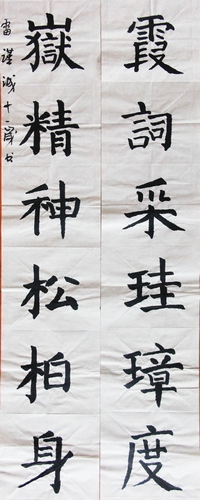 霞詞采珪璋度
嶽精神松柏身
十一歲书